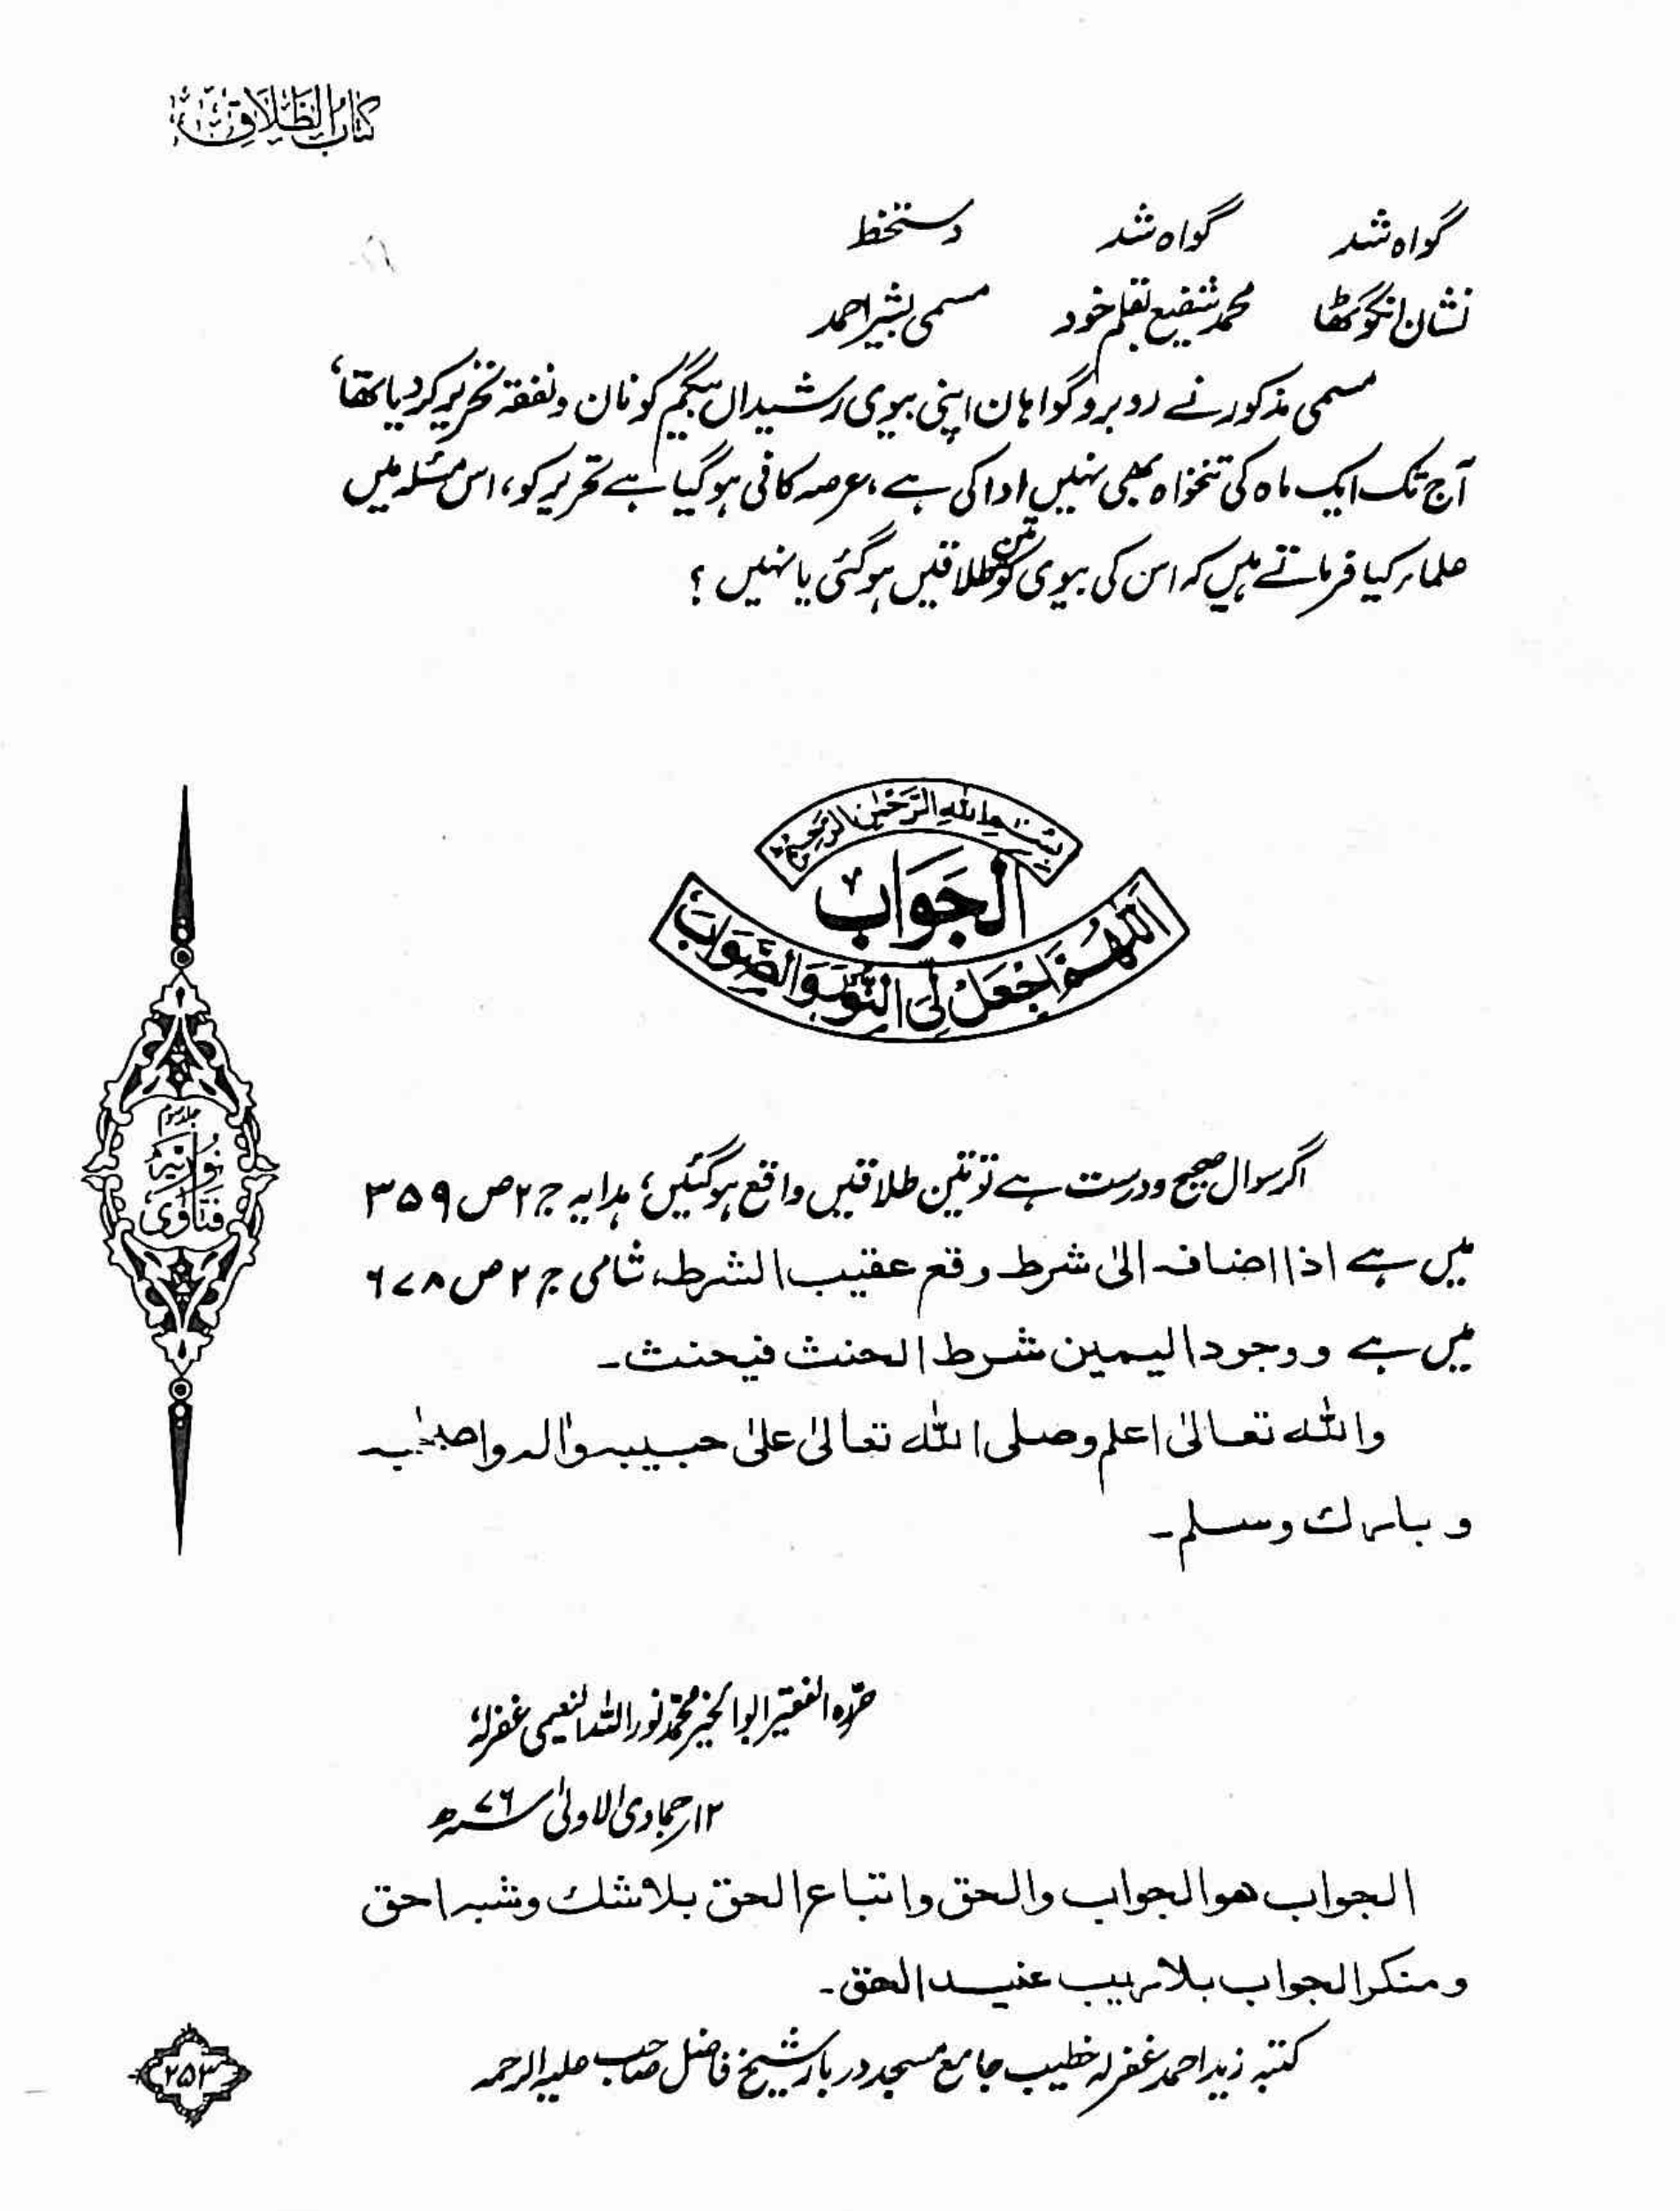 کتاب الطلاق
گواہ شد گواہ شد دستخط
نشان انگوٹھا محمد شفیع بقلم خود مسمی بشیر احمد
مسمی مذکور نے روبرو گواہان اپنی بیوی رشیداں بیگم کو نان و نفقہ تحریر کر دیا تھا،
آج تک ایک ماہ کی تنخواہ بھی نہیں ادا کی ہے، عرصہ کافی ہو گیا ہے تحریر کو، اس مسئلہ میں
علماء کیا فرماتے ہیں کہ اس کی بیوی کو تین طلاقیں ہو گئی یا نہیں؟
بسم الله الرحمن الرحيم
الجواب
اللهم اجعل لی النور والصواب
اگر سوال صحیح و درست ہے تو تین طلاقیں واقع ہو گئیں؛ ہدایہ ج ۲ ص ۳۵۹
میں ہے اذا اضافہ الیٰ شرط وقع عقیب الشرط، شامی ج ۲ ص ۶۷۸
میں ہے و وجود الیمین شرط الحنث فیحنث۔
واللہ تعالیٰ اعلم وصلی اللہ تعالیٰ علیٰ حبیبہ واٰلہ واصحٰبہ
و بارك وسلم۔
حررہ الفقیر ابو الخیر محمد نور اللہ النعیمی غفرلہ
۱۲؍جمادی الاولیٰ ۷۶ھ
الجواب هو الجواب والحق واتباع الحق بلا شك وشبه احق
ومنکر الجواب بلا ریب عنید الحق۔
کتبہ زید احمد غفرلہ خطیب جامع مسجد دربار شیخ فاضل صاحب علیہ الرحمہ
جلد سوم
فتاویٰ نوریہ
۲۵۳